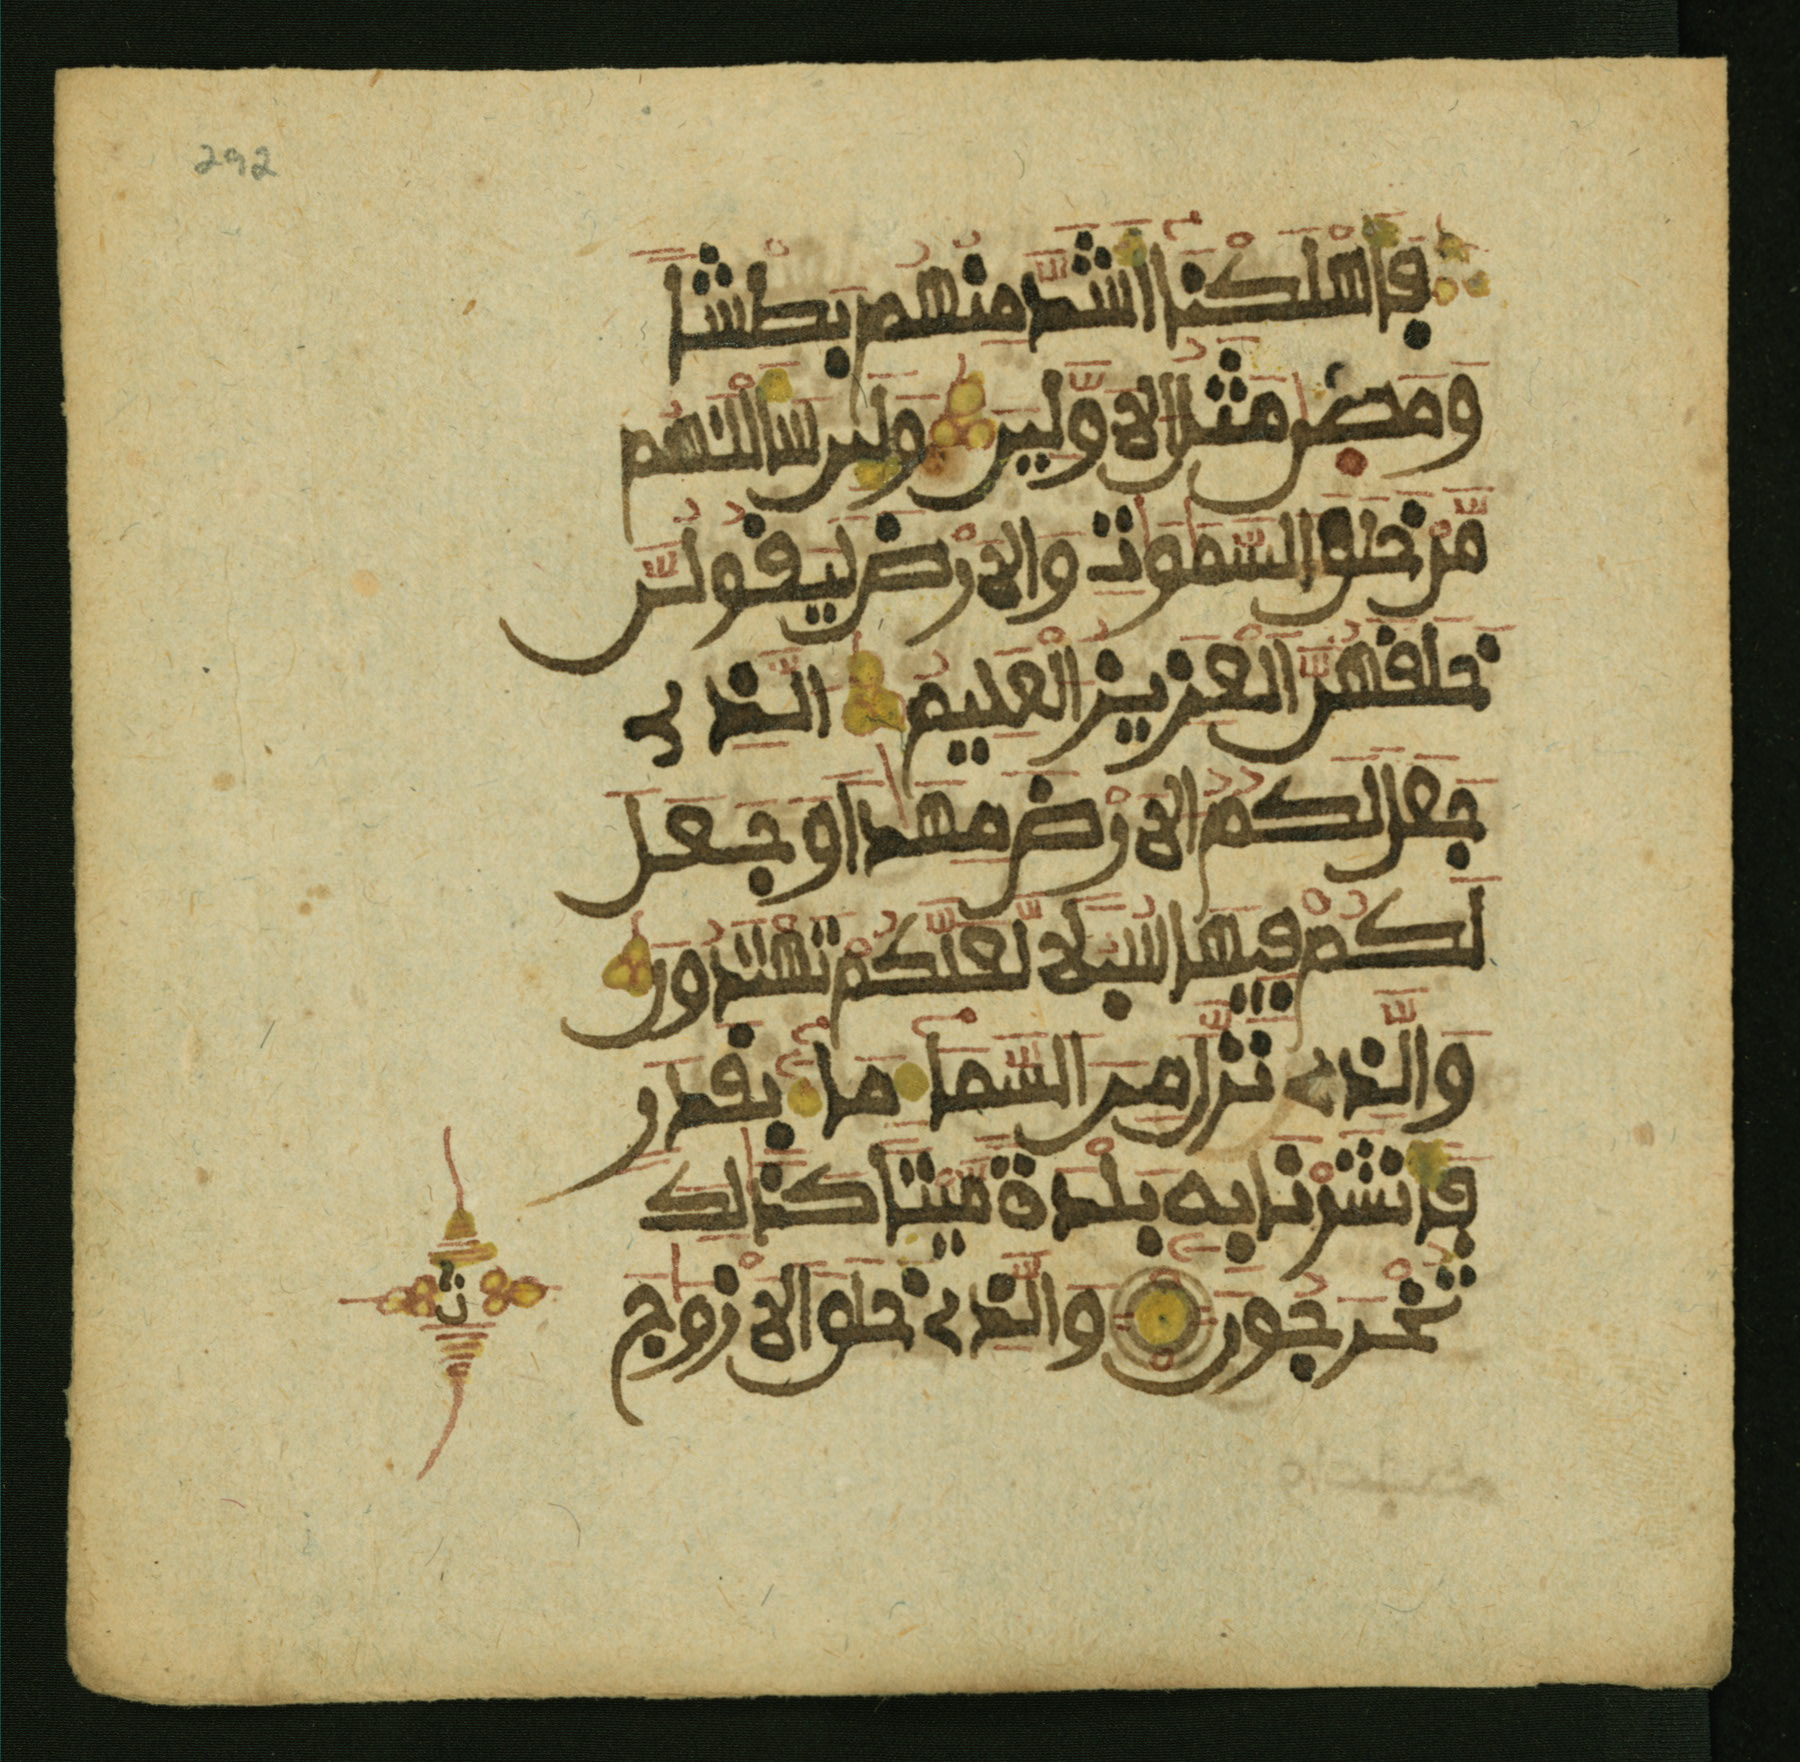 292
فأهلكنا أشد منهم بطشا
ومضى مثل الأولين ولين سألتهم
من خلق السموت والأرض ليقولن
خلقهن العزيز العليم الذى
جعل لكم الأرض مهدا وجعل
لكم فيها سبلا لعلكم تهتدون
والذى نزل من السماء ماء بقدر
فأنشرنا به بلدة ميتا كذلك
تخرجون والذى خلق الأزوج